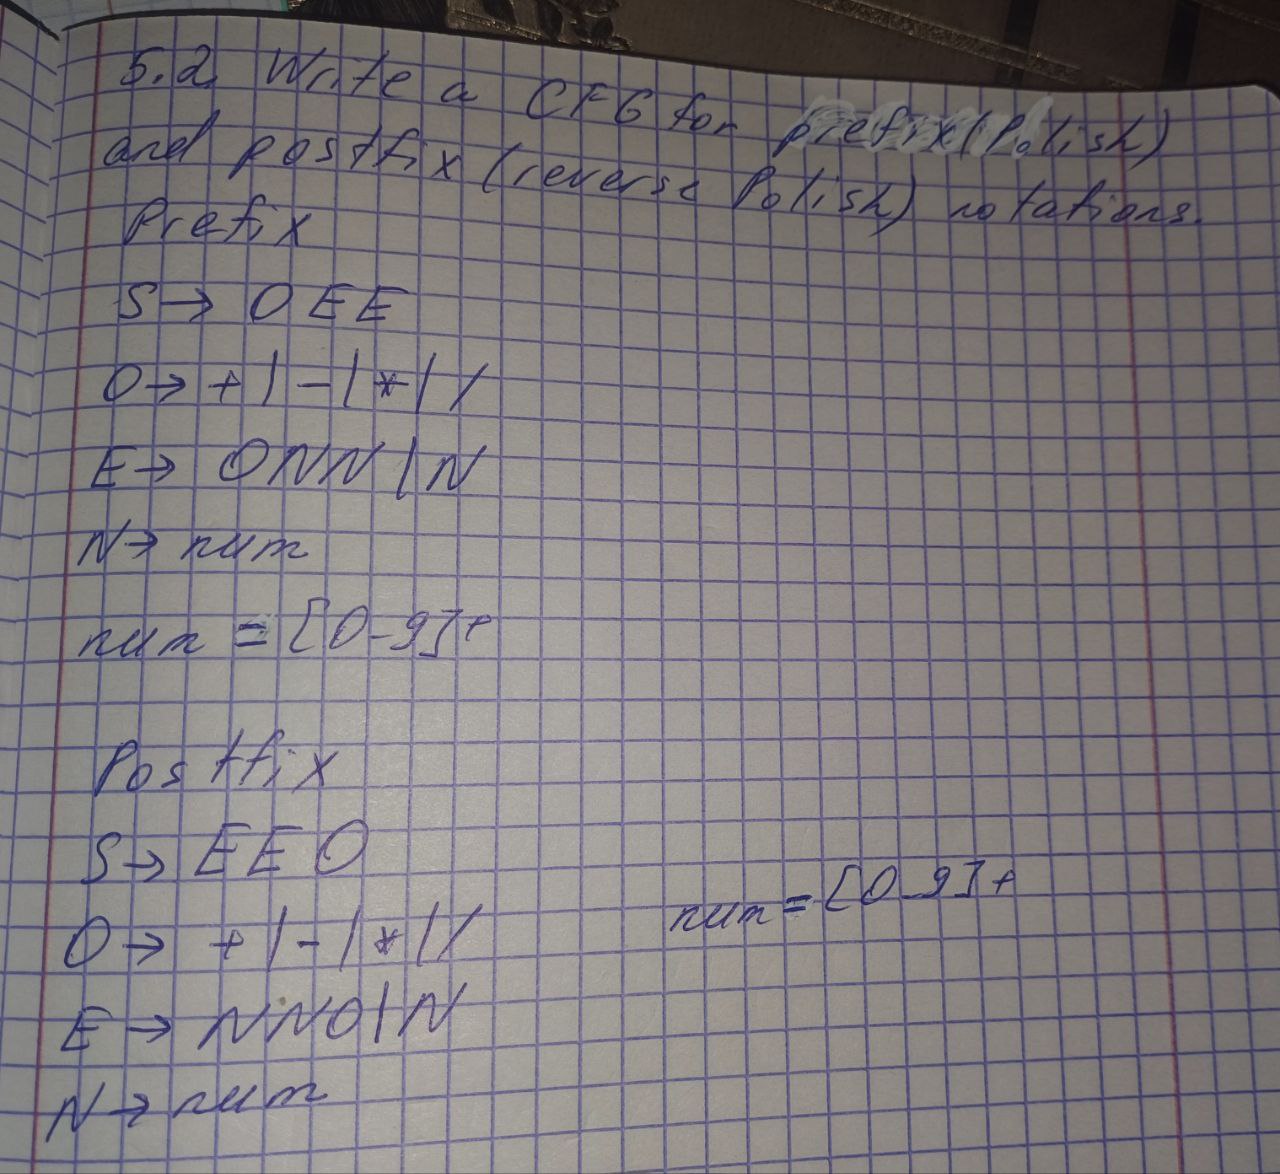 5.2. Write a CFG for prefix (Polish)
and postfix (reverse Polish) notations.
Prefix
S → O E E
O → + | - | * | /
E → O N N | N
N → num
num = [0-9]+
Postfix
S → E E O
O → + | - | * | /
num = [0-9]+
E → N N O | N
N → num